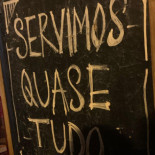 SERVIMOS
QUASE
TUDO